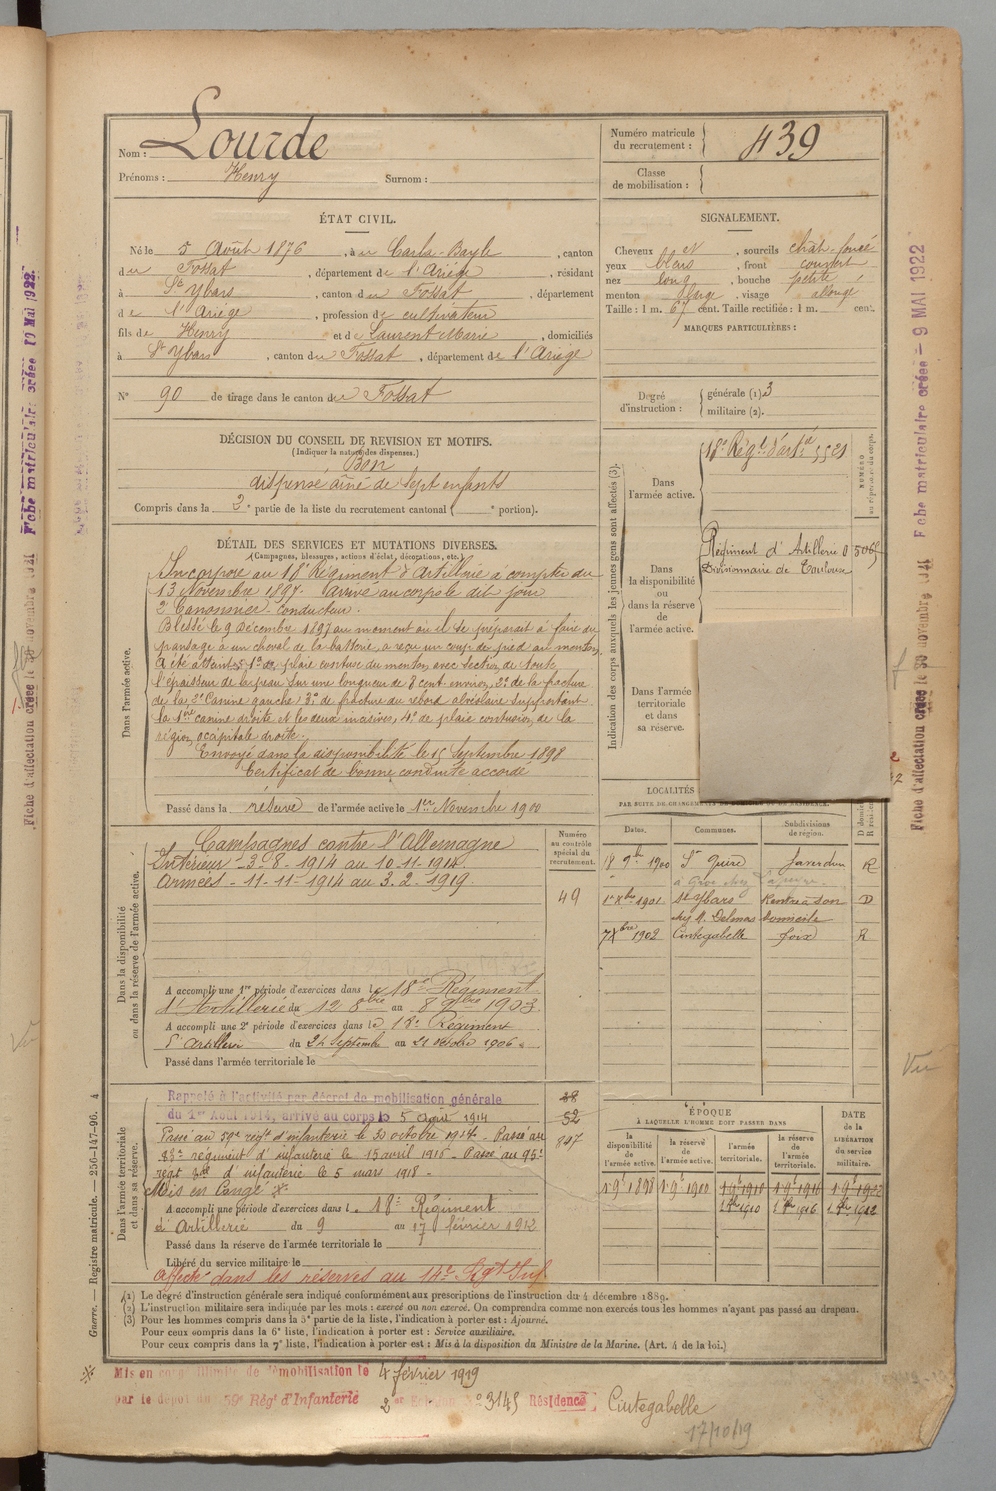 Nom : Lourde
Prénoms : Henry Surnom :
Numéro matricule du recrutement : 439
Classe de mobilisation :
ÉTAT CIVIL.
Né le 5 Août 1876, à u Carla-Bayle, canton
du Fossat, département de l'Ariège, résidant
à St Ybars, canton du Fossat, département
de l'Ariège, profession de cultivateur
fils de Henry et de Laurent Marie, domiciliés
à St Ybars, canton du Fossat, département de l'Ariège
N° 90 de tirage dans le canton du Fossat
SIGNALEMENT.
Cheveux et, sourcils chât-foncé
yeux bleus, front couvert
nez long, bouche petite
menton, visage allongé
Taille : 1 m. 67 cent. Taille rectifiée : 1 m. cent.
MARQUES PARTICULIÈRES :
Degré d'instruction : générale (1) 3
militaire (2).
DÉCISION DU CONSEIL DE REVISION ET MOTIFS.
(Indiquer la nature des dispenses.)
Bon
dispensé aîné de sept enfants
Compris dans la 2e partie de la liste du recrutement cantonal ( e portion).
DÉTAIL DES SERVICES ET MUTATIONS DIVERSES.
(Campagnes, blessures, actions d'éclat, décorations, etc.)
Dans l'armée active.
Incorporé au 18e Régiment d'Artillerie à compter du
13 Novembre 1897. Arrivé au corps le dit jour
2e Canonnier-Conducteur.
Blessé le 9 Décembre 1897 au moment où il se préparait à faire du
pansage à un cheval de la batterie, a reçu un coup de pied au menton.
A été atteint 1° de plaie contuse du menton avec section de toute
l'épaisseur de la peau sur une longueur de 8 cent. environ, 2° de la fracture
de la 2e Canine gauche; 3° de fracture du rebord alvéolaire supportant
la 1ère canine droite et les deux incisives, 4° de plaie contusion de la
région occipitale droite.
Envoyé dans la disponibilité le 15 Septembre 1898
Certificat de bonne conduite accordé
Passé dans la réserve de l'armée active le 1er Novembre 1900
Indication des corps auxquels les jeunes gens sont affectés (3).
NUMÉRO au répertoire du corps.
Dans l'armée active.
18e Régt d'artie 5521
Dans la disponibilité ou dans la réserve de l'armée active.
Régiment d'Artillerie
Divisionnaire de Toulouse
Dans l'armée territoriale et dans sa réserve.
LOCALITÉS
PAR SUITE DE CHANGEMENTS DE DOMICILE OU DE RÉSIDENCE.
Dates. Communes. Subdivisions de région.
18 9bre 1900 St Quirc Saverdun R
1er Xbre 1901 St Ybars Rentré à son D
chez M. Delmas domicile
7 Xbre 1902 Cintegabelle Foix R
Dans la disponibilité ou dans la réserve de l'armée active.
Numéro au contrôle spécial du recrutement.
49
Campagnes contre l'Allemagne
Intérieur - 3-8-1914 au 10-11-1914.
Armées - 11-11-1914 au 3-2-1919.
A accompli une 1re période d'exercices dans le 18e Régiment
d'Artillerie du 12 8bre au 8 9bre 1903
A accompli une 2e période d'exercices dans le 18e Régiment
d'Artillerie du 24 Septembre au 21 octobre 1906
Passé dans l'armée territoriale le
Dans l'armée territoriale et dans sa réserve.
Rappelé à l'activité par décret de mobilisation générale
du 1er Août 1914, arrivé au corps le 5 Août 1914
Passé au 59e régt d'infanterie le 30 octobre 1914. Passé au
83e régiment d'infanterie le 15 avril 1916. Passé au 95e
régt d'infanterie le 5 mars 1918.
Mis en Congé
38
52
807
A accompli une période d'exercices dans le 18e Régiment
d'Artillerie du 9 au 17 février 1912
Passé dans la réserve de l'armée territoriale le
Libéré du service militaire le
Affecté dans les réserves au 14e Rgt Inf.
ÉPOQUE
À LAQUELLE L'HOMME DOIT PASSER DANS
la disponibilité de l'armée active. la réserve de l'armée active. l'armée territoriale. la réserve de l'armée territoriale.
DATE de la LIBÉRATION du service militaire.
1er 9bre 1898 1er 9bre 1900 1er 9bre 1910 1er 9bre 1916 1er 9bre 1922
1er 8bre 1910 1er 8bre 1916 1er 8bre 1922
(1) Le degré d'instruction générale sera indiqué conformément aux prescriptions de l'instruction du 4 décembre 1889.
(2) L'instruction militaire sera indiquée par les mots : exercé ou non exercé. On comprendra comme non exercés tous les hommes n'ayant pas passé au drapeau.
(3) Pour les hommes compris dans la 5e partie de la liste, l'indication à porter est : Ajourné.
Pour ceux compris dans la 6e liste, l'indication à porter est : Service auxiliaire.
Pour ceux compris dans la 7e liste, l'indication à porter est : Mis à la disposition du Ministre de la Marine. (Art. 4 de la loi.)
Mis en congé illimité de démobilisation le 4 février 1919
par le dépôt du 59e Régt d'Infanterie 2e Echelon N° 3145 Résidence Cintegabelle
17/10/19
Guerre. — Registre matricule. — 256-147-96. 4
Fiche matriculaire créée le 9 MAI 1922
Fiche d'affectation créée le 30 novembre
Vu